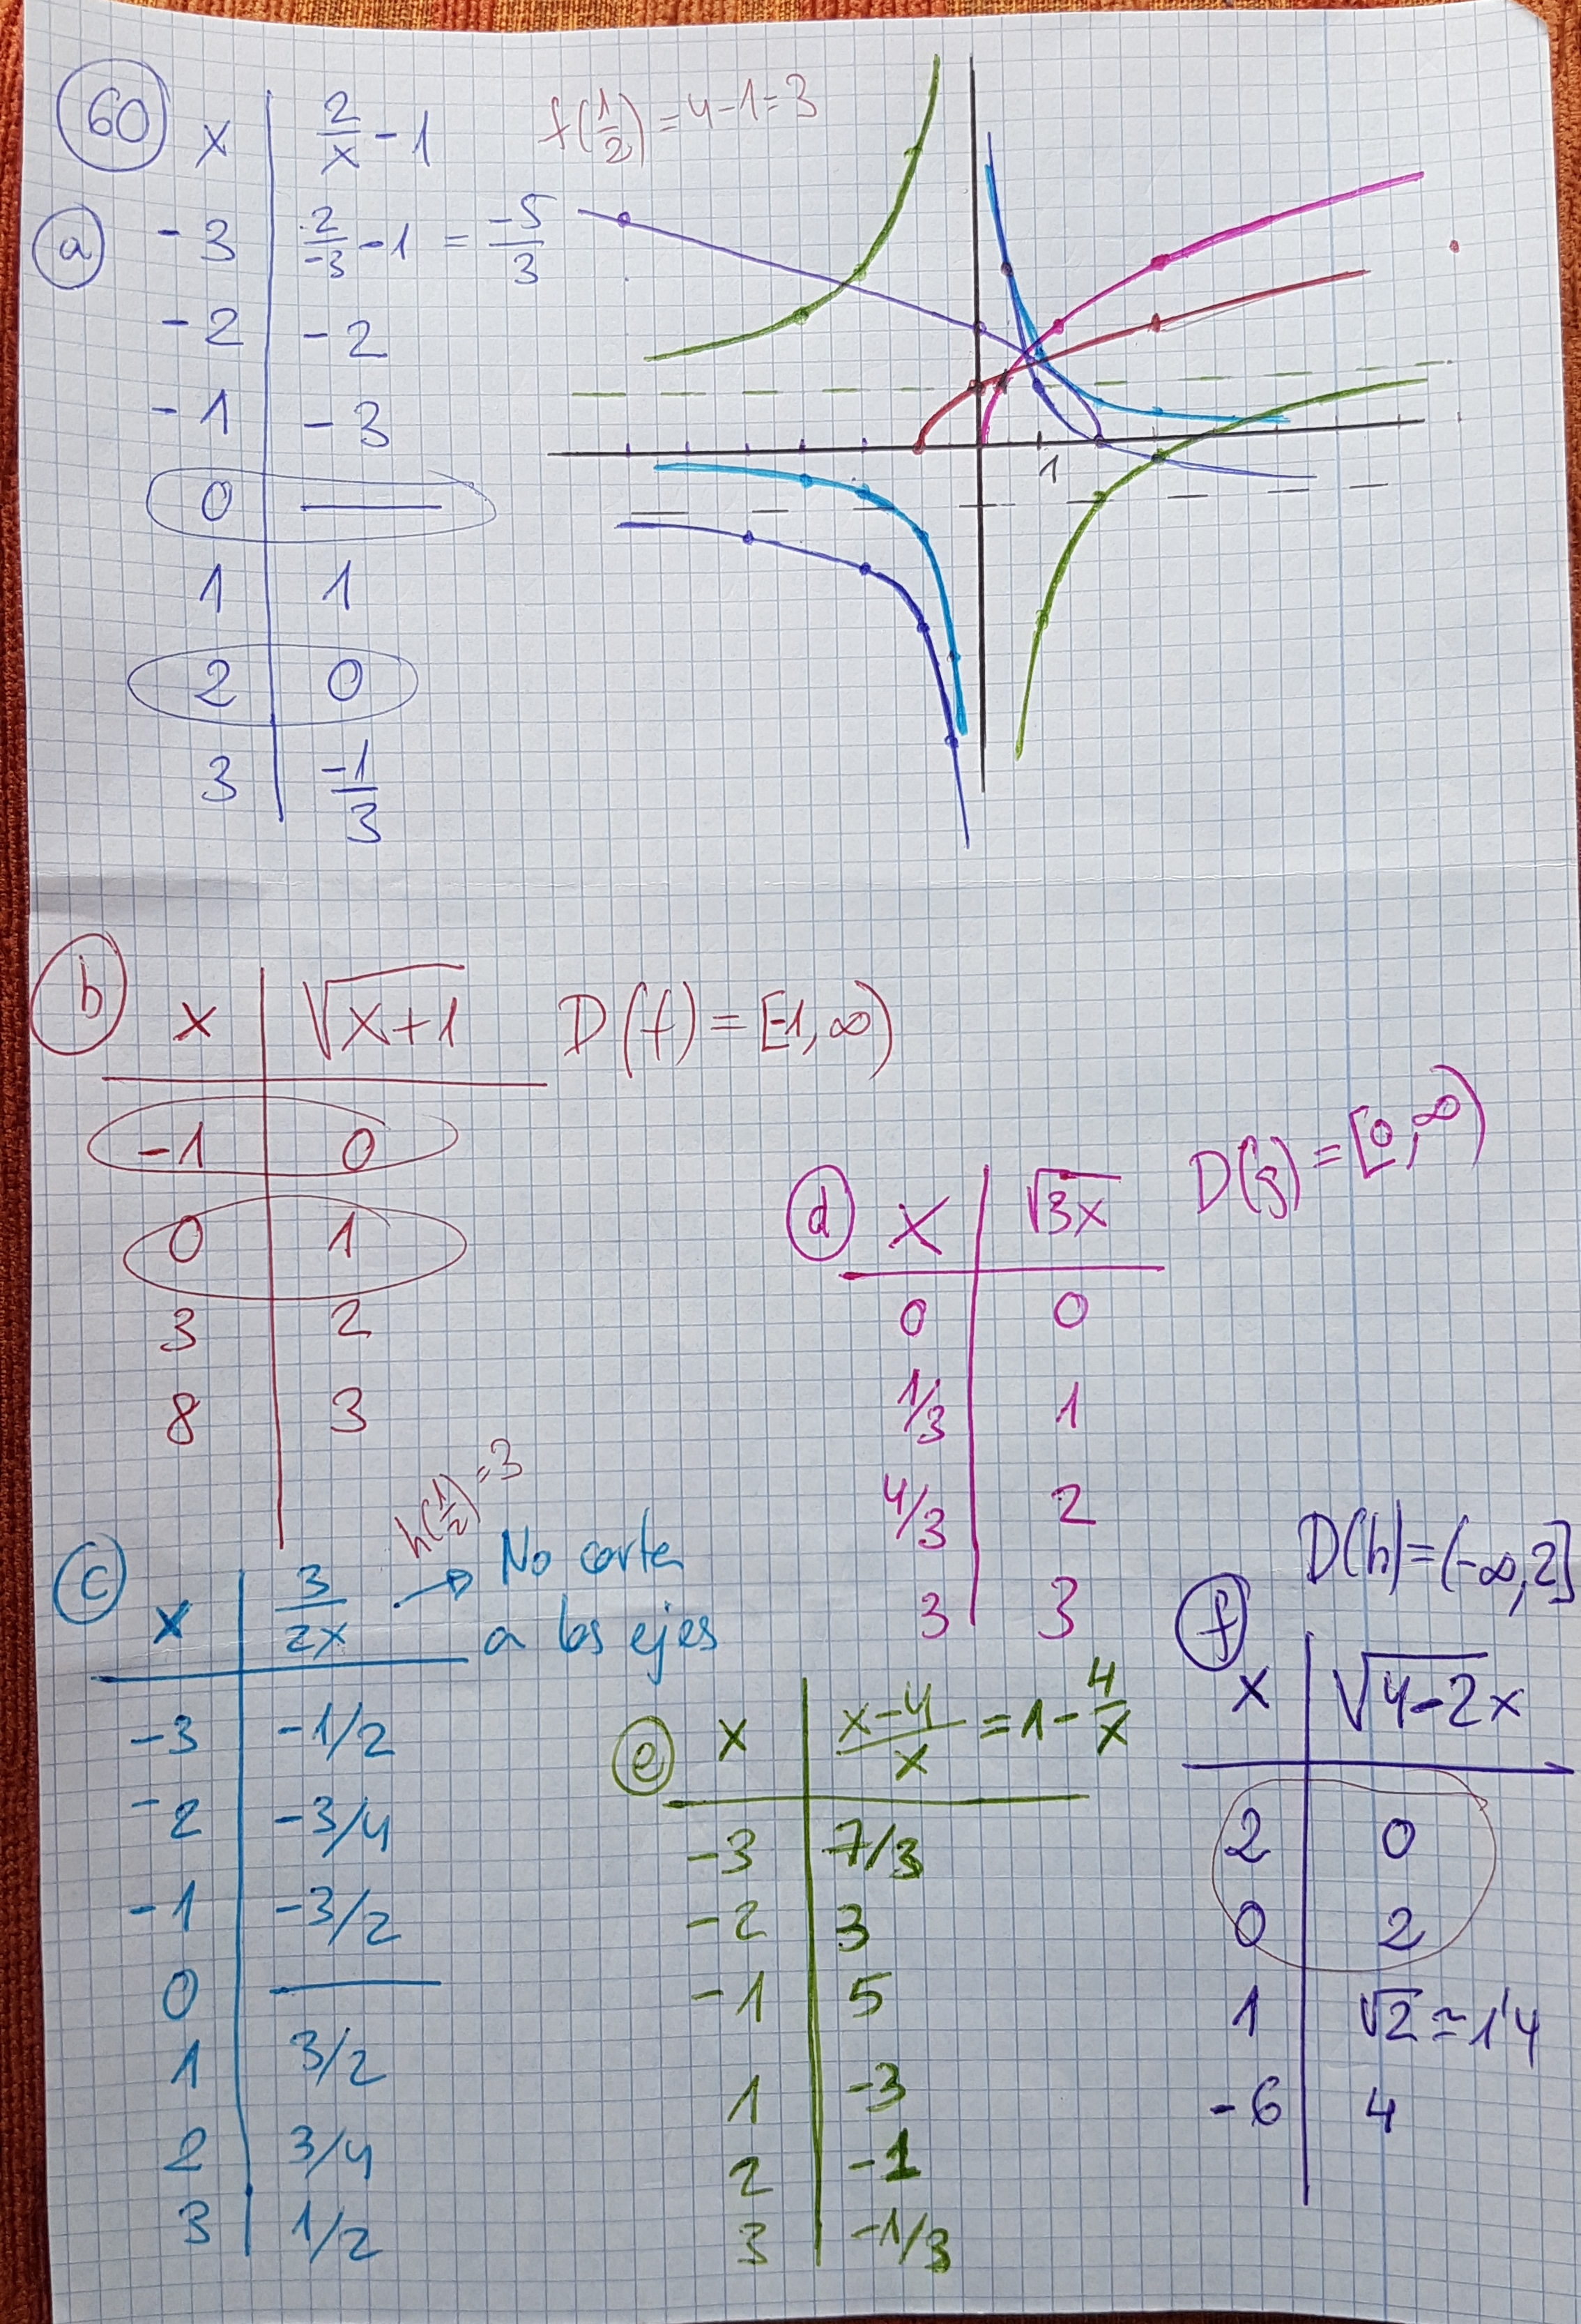 60 x | 2/x - 1 f(1/2) = 4-1=3
a -3 | 2/-3 - 1 = -5/3
-2 | -2
-1 | -3
0 | —
1 | 1
2 | 0
3 | -1/3
1
b x | √x+1 D(f) = [-1, ∞)
-1 | 0
0 | 1
3 | 2
8 | 3
d x | √3x D(g) = [0, ∞)
0 | 0
1/3 | 1
4/3 | 2
3 | 3
h(1/2) = 3
c x | 3/2x → No corta
a los ejes
-3 | -1/2
-2 | -3/4
-1 | -3/2
0 | —
1 | 3/2
2 | 3/4
3 | 1/2
e x | x-4/x = 1 - 4/x
-3 | 7/3
-2 | 3
-1 | 5
1 | -3
2 | -1
3 | -1/3
D(h) = (-∞, 2]
f x | √4-2x
2 | 0
0 | 2
1 | √2 ≃ 1'4
-6 | 4